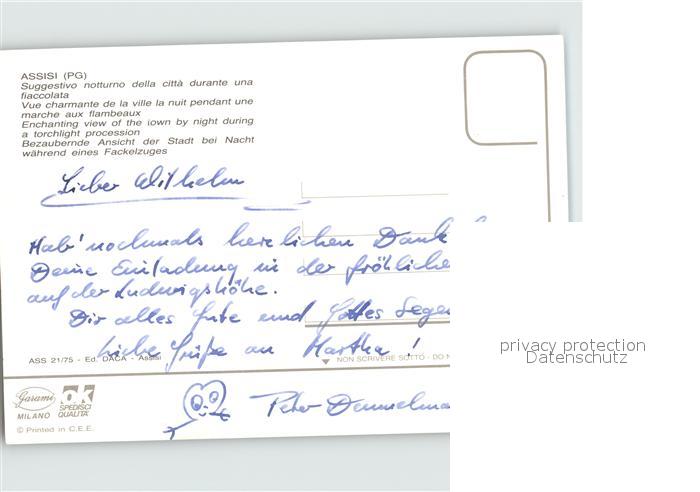 ASSISI (PG)
Suggestivo notturno della città durante una
fiaccolata
Vue charmante de la ville la nuit pendant une
marche aux flambeaux
Enchanting view of the town by night during
a torchlight procession
Bezaubernde Ansicht der Stadt bei Nacht
während eines Fackelzuges
Lieber Wilhelm
Hab' nochmals herzlichen Dank
Deine Einladung in der fröhliche
auf der Ludwigshöhe.
Dir alles Gute und Gottes Segen
Liebe Grüße an Martha!
ASS 21/75 - Ed. DACA - Assisi
NON SCRIVERE SOTTO - DO N
privacy protection
Datenschutz
Garami
MILANO
OK
SPEDISCI
QUALITA'
Peter
© Printed in C.E.E.